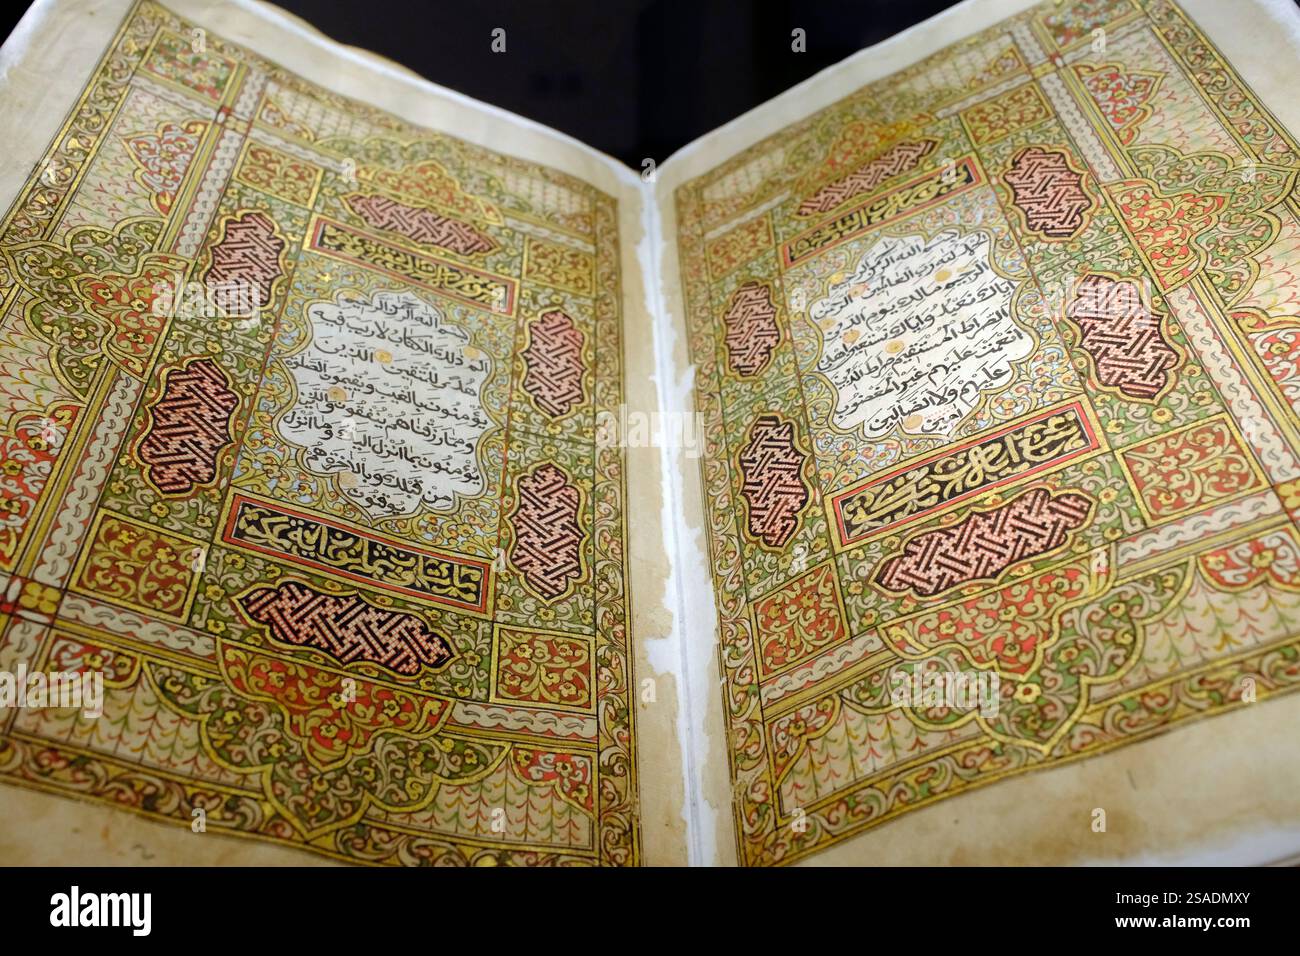 بسم الله الرحمن الرحيم
الحمد لله رب العالمين الرحمن
الرحيم مالك يوم الدين
اياك نعبد واياك نستعين اهدنا
الصراط المستقيم صراط الذين
انعمت عليهم غير المغضوب
عليهم ولا الضالين
امين
بسم الله الرحمن الرحيم
الم ذلك الكتاب لا ريب فيه
هدى للمتقين الذين
يؤمنون بالغيب ويقيمون الصلاة
ومما رزقناهم ينفقون والذين
يؤمنون بما انزل اليك وما انزل
من قبلك وبالاخرة هم
يوقنون
alamy
Image ID: 2SADMXY
www.alamy.com